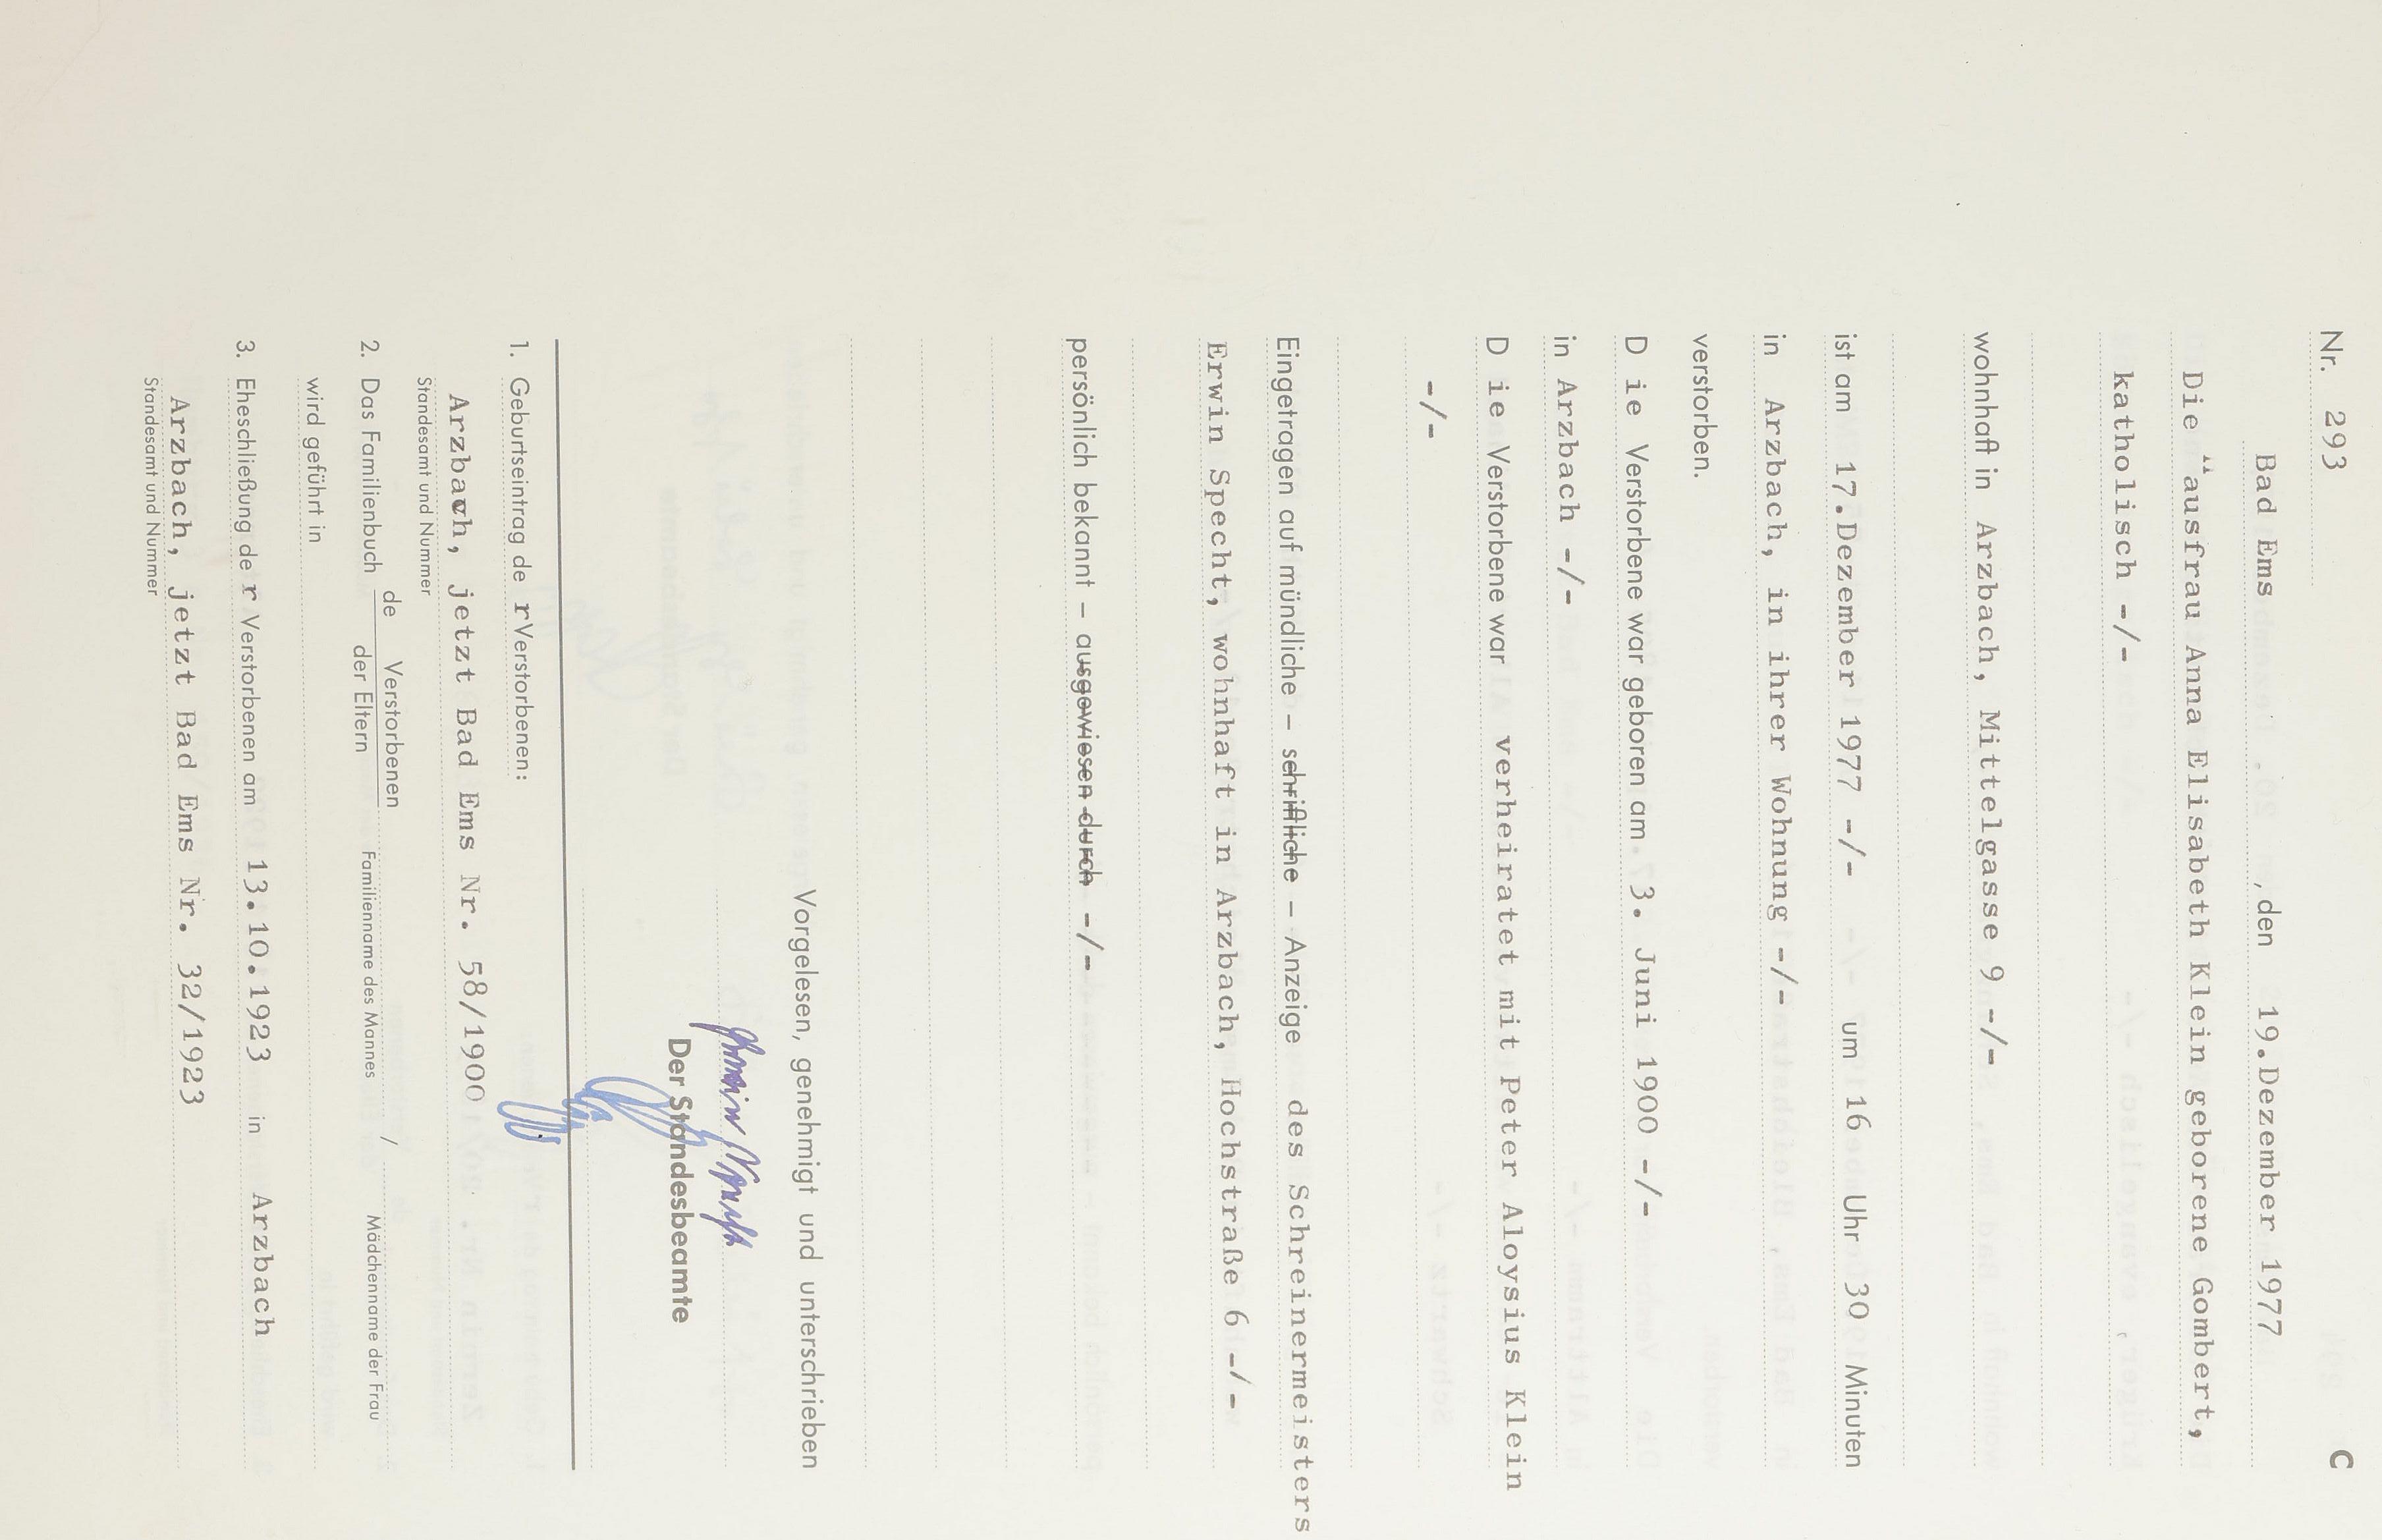 Nr. 293 C
Bad Ems , den 19.Dezember 1977
Die "ausfrau Anna Elisabeth Klein geborene Gombert,
katholisch -/-
wohnhaft in Arzbach, Mittelgasse 9 -/-
ist am 17.Dezember 1977 -/- um 16 Uhr 30 Minuten
in Arzbach, in ihrer Wohnung -/-
verstorben.
D ie Verstorbene war geboren am 3. Juni 1900 -/-
in Arzbach -/-
D ie Verstorbene war verheiratet mit Peter Aloysius Klein
-/-
Eingetragen auf mündliche – schriftliche – Anzeige des Schreinermeisters
Erwin Specht, wohnhaft in Arzbach, Hochstraße 6 -/-
persönlich bekannt – ausgewiesen durch -/-
Vorgelesen, genehmigt und unterschrieben
Erwin Specht
Der Standesbeamte
1. Geburtseintrag de r Verstorbenen:
Arzbach, jetzt Bad Ems Nr. 58/1900
Standesamt und Nummer
2. Das Familienbuch de Verstorbenen / 
der Eltern Familienname des Mannes Mädchenname der Frau
wird geführt in
3. Eheschließung de r Verstorbenen am 13.10.1923 in Arzbach
Arzbach, jetzt Bad Ems Nr. 32/1923
Standesamt und Nummer